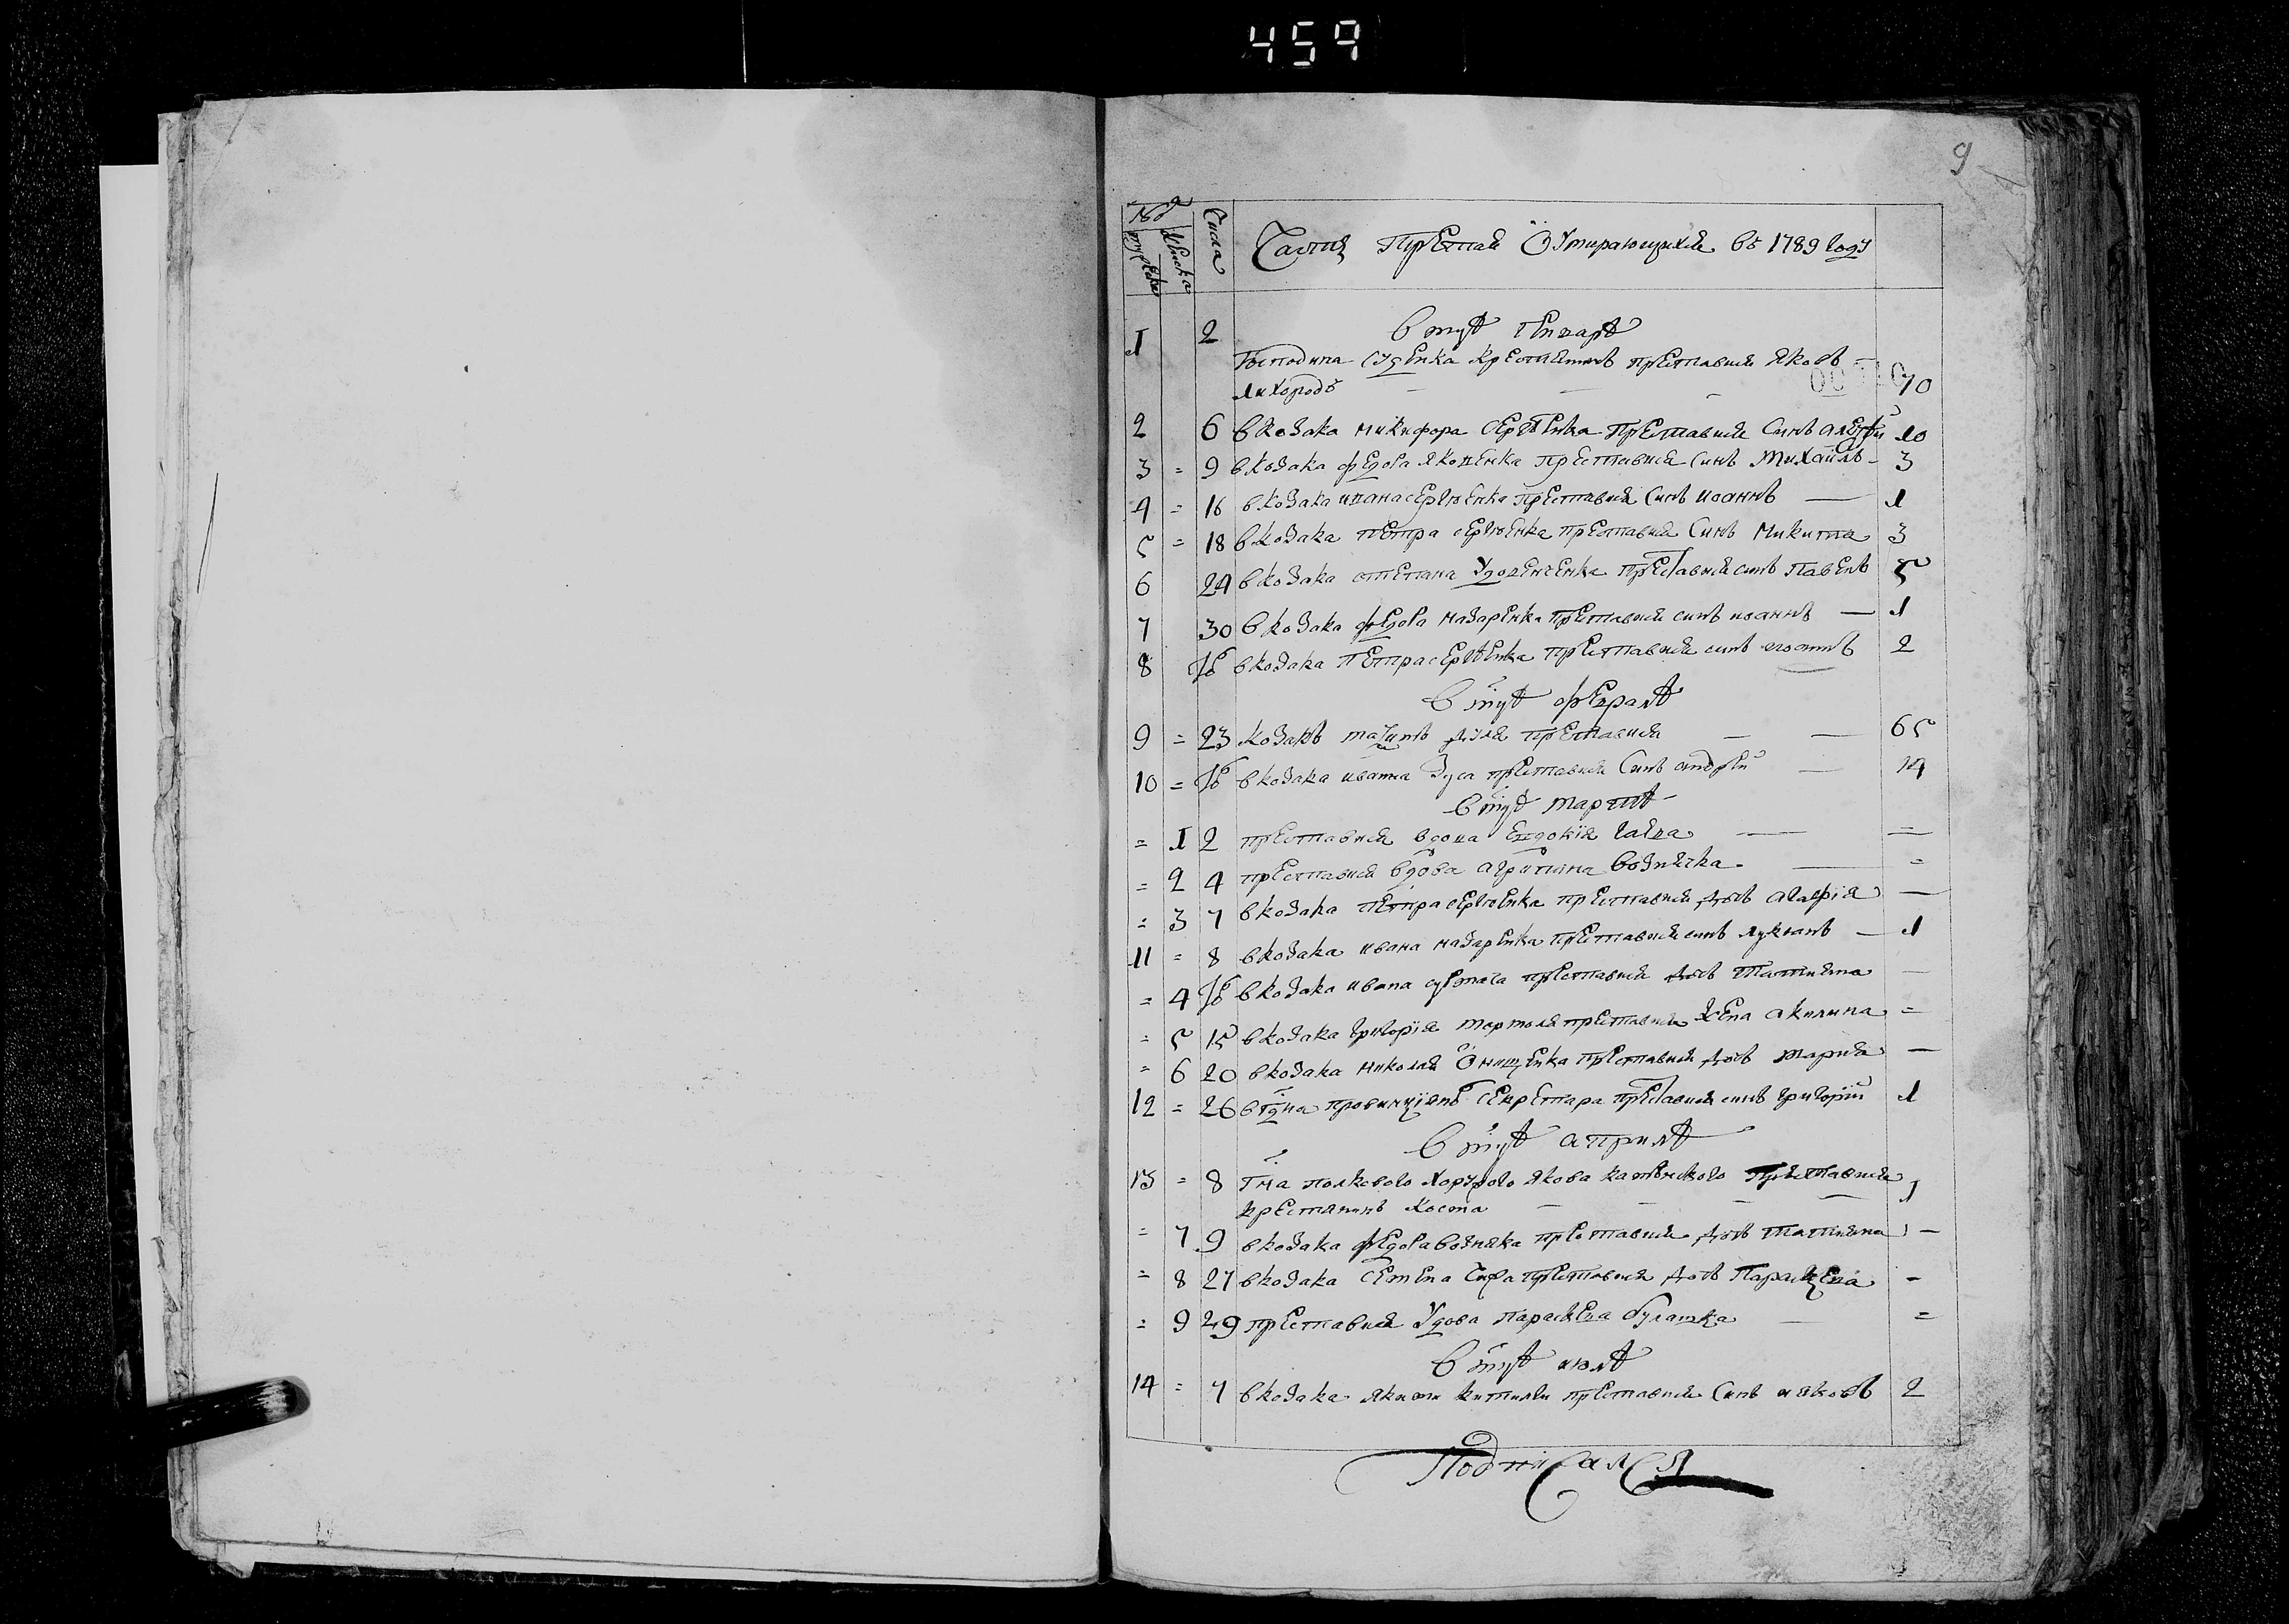 459
9
Числа
мужска
женска
Часть Третая О Умирающихъ въ 1789 году
В мцѣ Генварѣ
1 2 Господина Судѣнка крестянинъ преставися Яковъ
Лихородъ — — — 70
2 6 в козака Никифора Сергѣенка преставися Синъ 10
3 = 9 в козака Федора Яковенка преставися Синъ Михаилъ - 3
4 = 16 в козака Ивана Сергѣенка преставися Синъ Иоаннъ — 1
5 = 18 в козака Петра Сергѣенка преставися Синъ Микита 3
6 24 в козака Степана преставися синъ Павелъ 5
7 30 в козака Федора Назаренка преставися синъ Иоаннъ — 1
8 в козака Петра Сергѣенка преставися синъ Иоаннъ 2
В мцѣ Февралѣ
9 = 23 козакъ Дуля преставися — — 65
10 = в козака Иванна Зуса преставися Синъ Андрѣй — 14
В мцѣ Мартѣ
= 1 2 преставися вдова Евдокія — =
= 2 4 преставися вдова Агрипина Возничка — =
= 3 7 в козака Петра Сергѣенка преставися дочъ Агафія —
11 = 8 в козака Ивана Назаренка преставися синъ Лукианъ — 1
= 4 в козака Ивана преставися дочъ Татияна —
= 5 15 в козака Григорія преставися жена Акилина =
= 6 20 в козака Николая Онищенка преставися дочъ Мария —
12 = 26 в Гдна Секретара преставися синъ Григорій 1
В мцѣ Априлѣ
13 = 8 Гна полкового Хоружого Якова преставися
крестянинъ Косма — — — 1
= 7 9 в козака Федора Возняка преставися дочъ Татияна —
= 8 27 в козака Семена преставися дочъ Параскева -
= 9 29 преставися Удова Параскева — =
В мцѣ Июлѣ
14 = 7 в козака преставися Синъ Ияковъ 2
Подписался